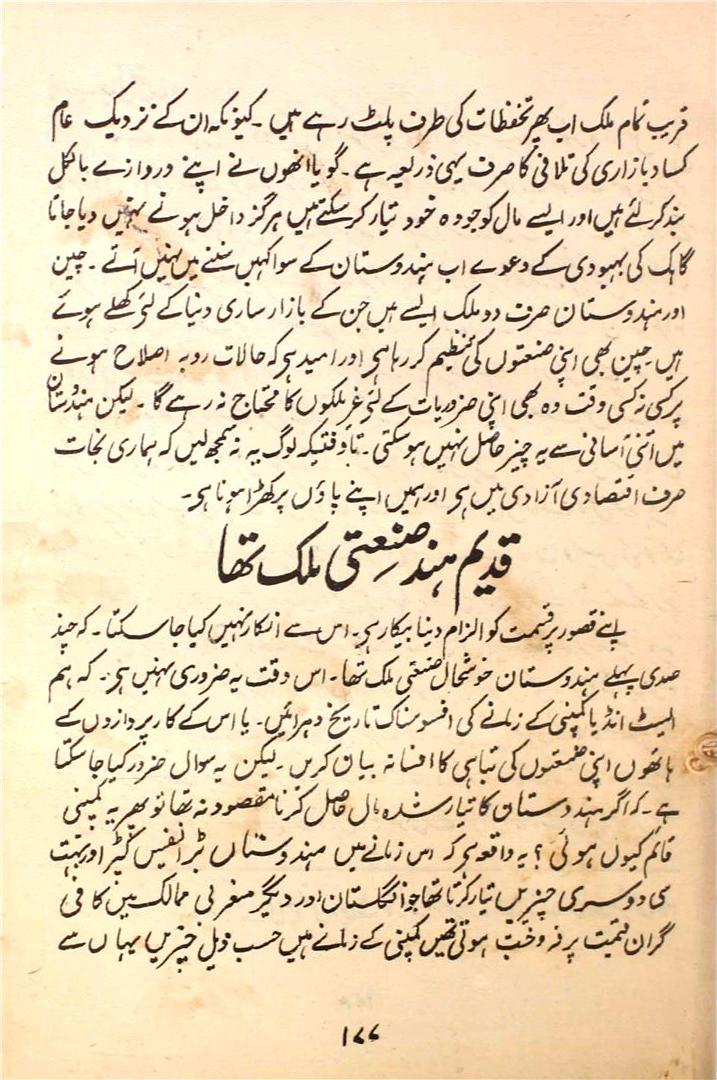 قریب تمام ملک اب پھر تحفظات کی طرف پلٹ رہے ہیں ۔ کیونکہ ان کے نزدیک عام
کساد بازاری کی تلافی کا صرف یہی ذریعہ ہے ۔ گویا انھوں نے اپنے دروازے بالکل
بند کر لئے ہیں اور ایسے مال کو جو وہ خود تیار کر سکتے ہیں ہرگز داخل ہونے نہیں دیا جاتا
گاہک کی بہبودی کے دعوے اب ہندوستان کے سوا کہیں سننے میں نہیں آتے ۔ چین
اور ہندوستان صرف دو ملک ایسے ہیں جن کے بازار ساری دنیا کے لئے کھلے ہوئے
ہیں چین بھی اپنی صنعتوں کی تنظیم کر رہا ہی اور امید ہی کہ حالات روبہ اصلاح ہونے
پر کسی نہ کسی وقت وہ بھی اپنی ضروریات کے لئے غیر ملکوں کا محتاج نہ رہے گا ۔ لیکن ہندوستان
میں اتنی آسانی سے یہ چیز حاصل نہیں ہو سکتی ۔ تاوقتیکہ لوگ یہ نہ سمجھ لیں کہ ہماری نجات
صرف اقتصادی آزادی میں ہی اور ہمیں اپنے پاؤں پر کھڑا ہونا ہی ۔
قدیم ہند صنعتی ملک تھا
اپنے قصور پر قسمت کو الزام دینا بیکار ہی ۔ اس سے انکار نہیں کیا جا سکتا ۔ کہ چند
صدی پہلے ہندوستان خوشحال صنعتی ملک تھا ۔ اس وقت یہ ضروری نہیں ہی ۔ کہ ہم
ایسٹ انڈیا کمپنی کے زمانے کی افسوسناک تاریخ دہرائیں ۔ یا اس کے کارپردازوں کے
ہاتھوں اپنی صنعتوں کی تباہی کا افسانہ بیان کریں ۔ لیکن یہ سوال ضرور کیا جا سکتا
ہے ۔ کہ اگر ہندوستان کا تیار شدہ مال حاصل کرنا مقصود نہ تھا تو پھر یہ کمپنی
قائم کیوں ہوئی ؟ یہ واقعہ ہی کہ اس زمانے میں ہندوستان بڑا نفیس کپڑا اور بہت
سی دوسری چیزیں تیار کرتا تھا جو انگلستان اور دیگر مغربی ممالک میں کافی
گراں قیمت پر فروخت ہوتی تھیں کمپنی کے زمانے میں حسب ذیل چیزیں یہاں سے
۱۷۷